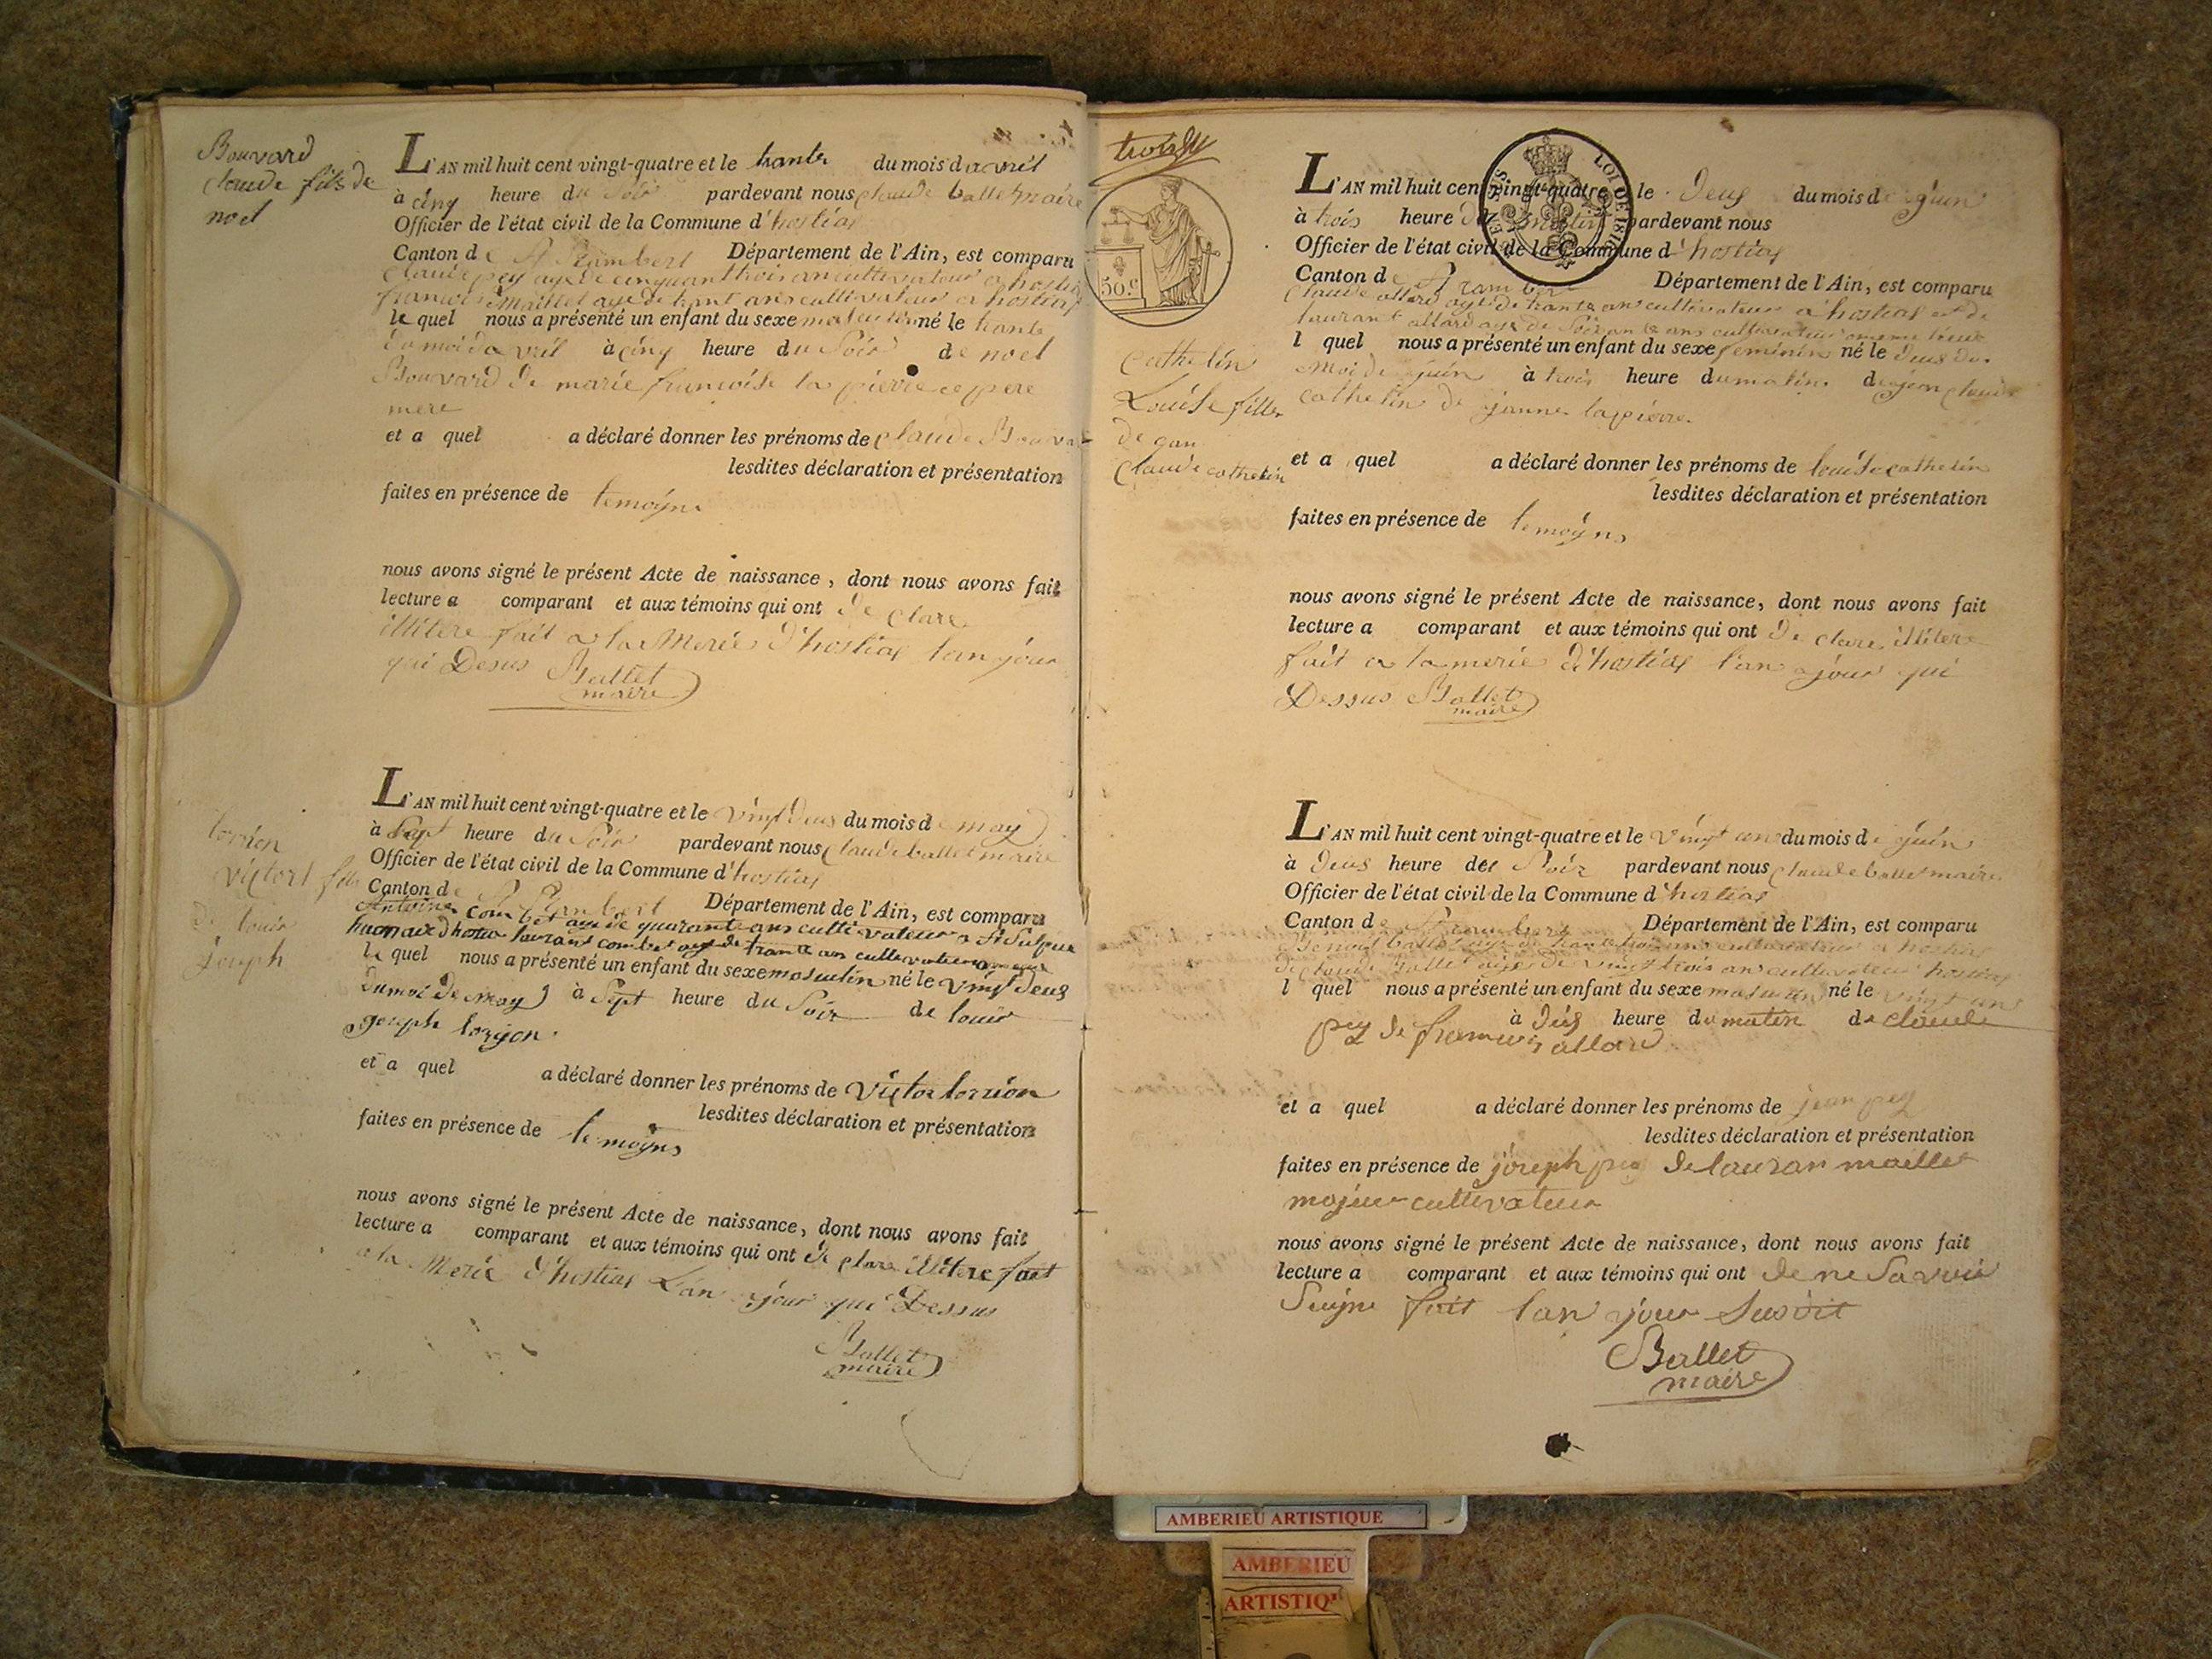 Bouvard
Claude fils de
noel
L'AN mil huit cent vingt-quatre et le trante du mois d avril
à cinq heure du Soir pardevant nous Claude ballet maire
Officier de l'état civil de la Commune d'hostias
Canton de St Rambert Département de l'Ain, est comparu
Claude pey aye de cinquant trois an cultivateur a hostias
francois Maillet aye de trant ans cultivateur a hostias
le quel nous a présenté un enfant du sexe masculin né le trante
du moi d avril à cinq heure du Soir de noel
Bouvard de marie francoise la pierre ce pere
mere
et a quel a déclaré donner les prénoms de Claude Bouvar
lesdites déclaration et présentation
faites en présence de temoyns
nous avons signé le présent Acte de naissance, dont nous avons fait
lecture a comparant et aux témoins qui ont de clare
illitere fait a la Merie d'hostias lan jour
qui Desus Ballet
maire
lorrion
victort fils
de louis
joseph
L'AN mil huit cent vingt-quatre et le vingt deus du mois de may
à Sept heure du Soir pardevant nous Claude ballet maire
Officier de l'état civil de la Commune d'hostias
Canton de St Rambert Département de l'Ain, est comparu
Antoine combet aye de quarante ans cultivateur a St Sulpice
laurant combet aye de trante an cultivateur
le quel nous a présenté un enfant du sexe masculin né le vingt deus
du moi de may à Sept heure du Soir de louis
joseph
et a quel a déclaré donner les prénoms de victor lorrion
lesdites déclaration et présentation
faites en présence de temoyns
nous avons signé le présent Acte de naissance, dont nous avons fait
lecture a comparant et aux témoins qui ont de clare illitere fait
a la Merie d'hostias L'an jour qui Dessus
Ballet
maire
50.c
LOI DE
L'AN mil huit cent vingt-quatre le deus du mois de juin
à trois heure du matin pardevant nous
Officier de l'état civil de la Commune d'hostias
Canton de St rambert Département de l'Ain, est comparu
Claude allard aye de trante an cultivateur a hostias et de
laurant allard aye de Soixante ans cultivateur
l quel nous a présenté un enfant du sexe feminin né le deus du
Moi de juin à trois heure du matin de jean Claude
cathelin de janne lapierre
Cathelin
Louise fille
de gan
Claude cathelin
et a quel a déclaré donner les prénoms de louise cathelin
lesdites déclaration et présentation
faites en présence de temoyns
nous avons signé le présent Acte de naissance, dont nous avons fait
lecture a comparant et aux témoins qui ont de clare illitere
fait a la merie d'hostias l'an jour qui
Dessus Ballet
maire
L'AN mil huit cent vingt-quatre et le vingt un du mois de juin
à deus heure du Soir pardevant nous Claude ballet maire
Officier de l'état civil de la Commune d'hostias
Canton de St Rambert Département de l'Ain, est comparu
ballet aye de cultivateur a hostias
de claude ballet aye de vingt trois an cultivateur hostias
l quel nous a présenté un enfant du sexe masculin né le vingt un
à heure du matin de claude
pey de francois allard
et a quel a déclaré donner les prénoms de jean pey
lesdites déclaration et présentation
faites en présence de joseph pey de lauran maillet
majeur cultivateur
nous avons signé le présent Acte de naissance, dont nous avons fait
lecture a comparant et aux témoins qui ont de ne Savoir
Seigne fait lan jour Susdit
Ballet
maire
AMBERIEU ARTISTIQUE
AMBERIEU
ARTISTIQ